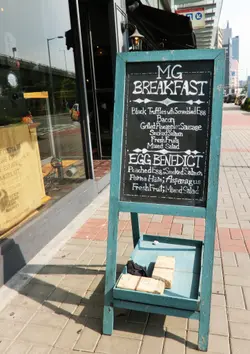 MG
BREAKFAST
Black Truffles with Scrambled Egg
Bacon
Grilled Pineapple Sausage
Smoked Salmon
Fresh Fruits
Mixed Salad
EGG BENEDICT
Poached Egg Smoked Salmon
Parma Ham Asparagus
Fresh Fruit Mixed Salad